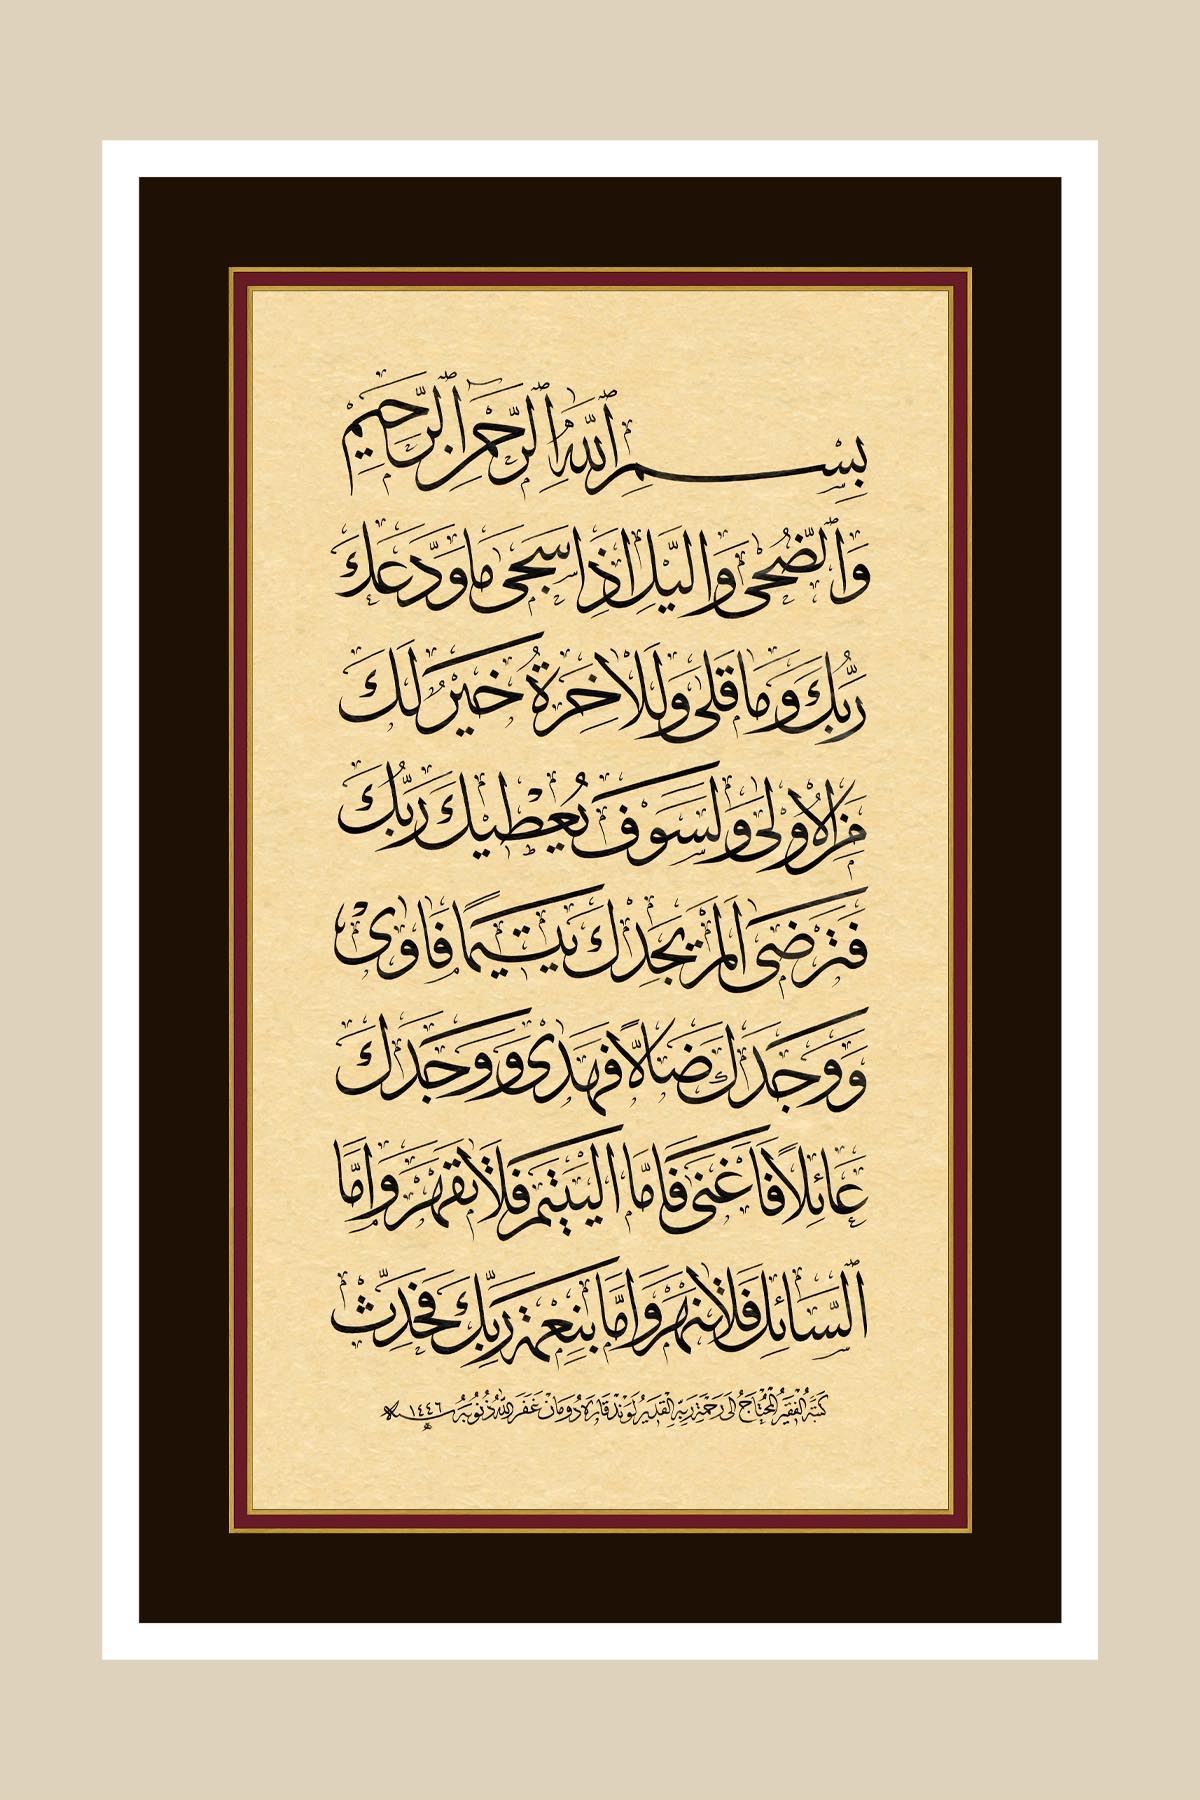 بِسْمِ ٱللّٰهِ ٱلرَّحْمٰنِ ٱلرَّحِيمِ
وَٱلضُّحٰى وَالَّيْلِ اِذَا سَجٰى مَا وَدَّعَكَ
رَبُّكَ وَمَا قَلٰى وَلَلْاٰخِرَةُ خَيْرٌ لَكَ
مِنَ الْاُو۫لٰى وَلَسَوْفَ يُعْطِيكَ رَبُّكَ
فَتَرْضٰى اَلَمْ يَجِدْكَ يَتِيمًا فَاٰوٰى
وَوَجَدَكَ ضَالًّا فَهَدٰى وَوَجَدَكَ
عَائِلًا فَاَغْنٰى فَاَمَّا الْيَتِيمَ فَلَا تَقْهَرْ وَاَمَّا
ٱلسَّائِلَ فَلَا تَنْهَرْ وَاَمَّا بِنِعْمَةِ رَبِّكَ فَحَدِّثْ
كتبه الفقير المحتاج الى رحمة ربه القدير لوند قاره دومان غفر الله ذنوبه سنة ١٤٤٦